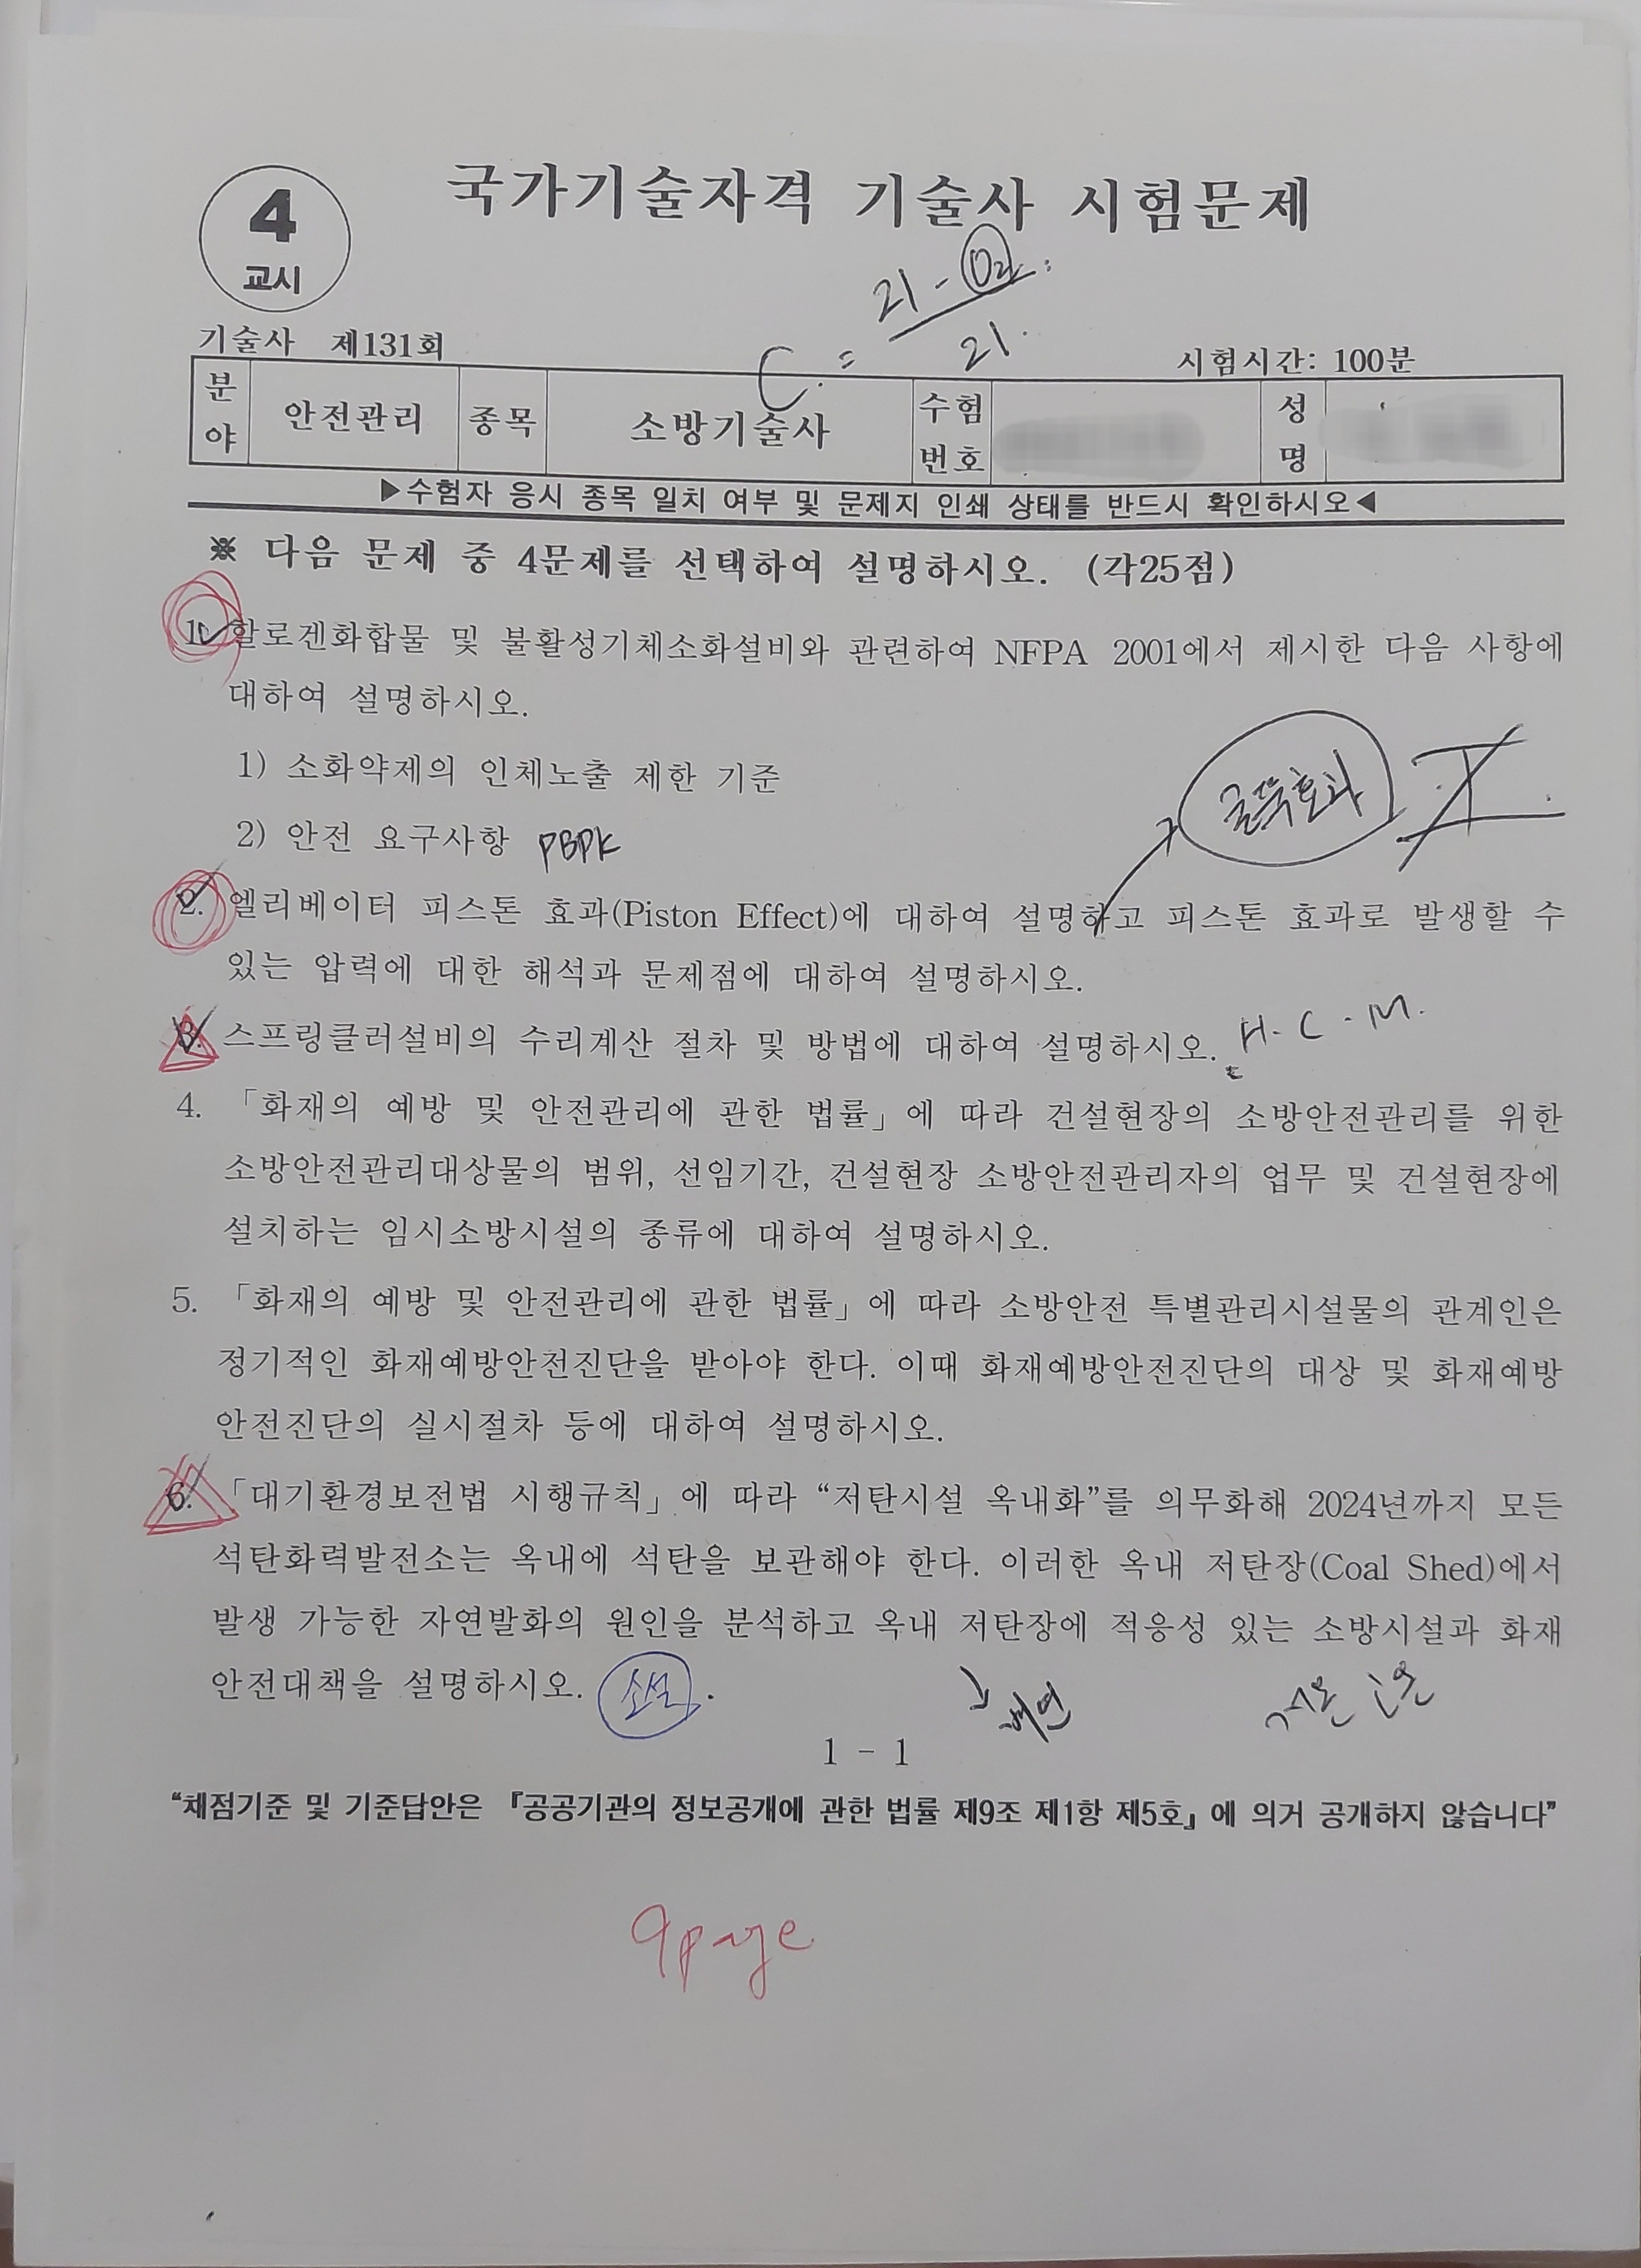 4
교시
국가기술자격 기술사 시험문제
C = 21 - O2 / 21
기술사 제131회
시험시간: 100분
분야 안전관리 종목 소방기술사 수험번호 성명
▶수험자 응시 종목 일치 여부 및 문제지 인쇄 상태를 반드시 확인하시오◀
※ 다음 문제 중 4문제를 선택하여 설명하시오. (각25점)
1. 할로겐화합물 및 불활성기체소화설비와 관련하여 NFPA 2001에서 제시한 다음 사항에
대하여 설명하시오.
1) 소화약제의 인체노출 제한 기준
2) 안전 요구사항 PBPK
굴뚝효과
2. 엘리베이터 피스톤 효과(Piston Effect)에 대하여 설명하고 피스톤 효과로 발생할 수
있는 압력에 대한 해석과 문제점에 대하여 설명하시오.
3. 스프링클러설비의 수리계산 절차 및 방법에 대하여 설명하시오. H - C - M.
4. 「화재의 예방 및 안전관리에 관한 법률」에 따라 건설현장의 소방안전관리를 위한
소방안전관리대상물의 범위, 선임기간, 건설현장 소방안전관리자의 업무 및 건설현장에
설치하는 임시소방시설의 종류에 대하여 설명하시오.
5. 「화재의 예방 및 안전관리에 관한 법률」에 따라 소방안전 특별관리시설물의 관계인은
정기적인 화재예방안전진단을 받아야 한다. 이때 화재예방안전진단의 대상 및 화재예방
안전진단의 실시절차 등에 대하여 설명하시오.
6. 「대기환경보전법 시행규칙」에 따라 “저탄시설 옥내화”를 의무화해 2024년까지 모든
석탄화력발전소는 옥내에 석탄을 보관해야 한다. 이러한 옥내 저탄장(Coal Shed)에서
발생 가능한 자연발화의 원인을 분석하고 옥내 저탄장에 적응성 있는 소방시설과 화재
안전대책을 설명하시오. 소설.
1 - 1
“채점기준 및 기준답안은 『공공기관의 정보공개에 관한 법률 제9조 제1항 제5호』에 의거 공개하지 않습니다”
9page